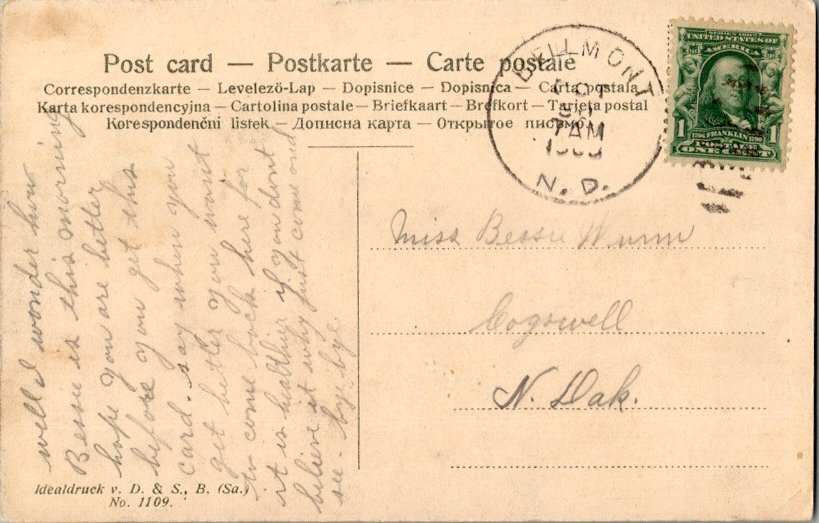 Post card — Postkarte — Carte postale
Correspondenzkarte — Levelező-Lap — Dopisnice — Dopisnica — Carta postala
Karta korespondencyjna — Cartolina postale — Briefkaart — Brefkort — Tarjeta postal
Korespondenční lístek — Дописна карта — Открытое письмо
BELLMONT
7 AM
N. D.
SERIES 1902
UNITED STATES OF
AMERICA
1 FRANKLIN 1
POSTAGE
ONE CENT
Miss Bessie
Cogswell
N. Dak.
well I wonder how
Bessie is this morning
hope you are better
before you get this
card. say when you
get better you want
to come back here for
it is healthier if you dont
believe it why just come and
see. by bye
Idealdruck v. D. & S., B. (Sa.)
No. 1109.